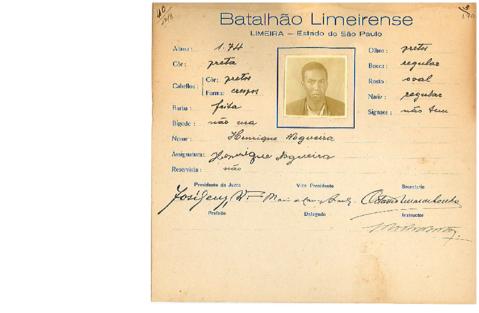 Batalhão Limeirense
LIMEIRA — Estado de São Paulo
Altura: 1.74
Olhos: pretos
Côr: preta
Bocca: regular
Cabellos: Côr: pretos
Rosto: oval
Fórma: crespos
Nariz: regular
Barba: feita
Signaes: não tem
Bigode: não usa
Nome: Henrique Nogueira
Assignatura: Henrique Nogueira
Reservista: não
Presidente da Junta
Vice Presidente
Secretario
Prefeito
Delegado
Instructor